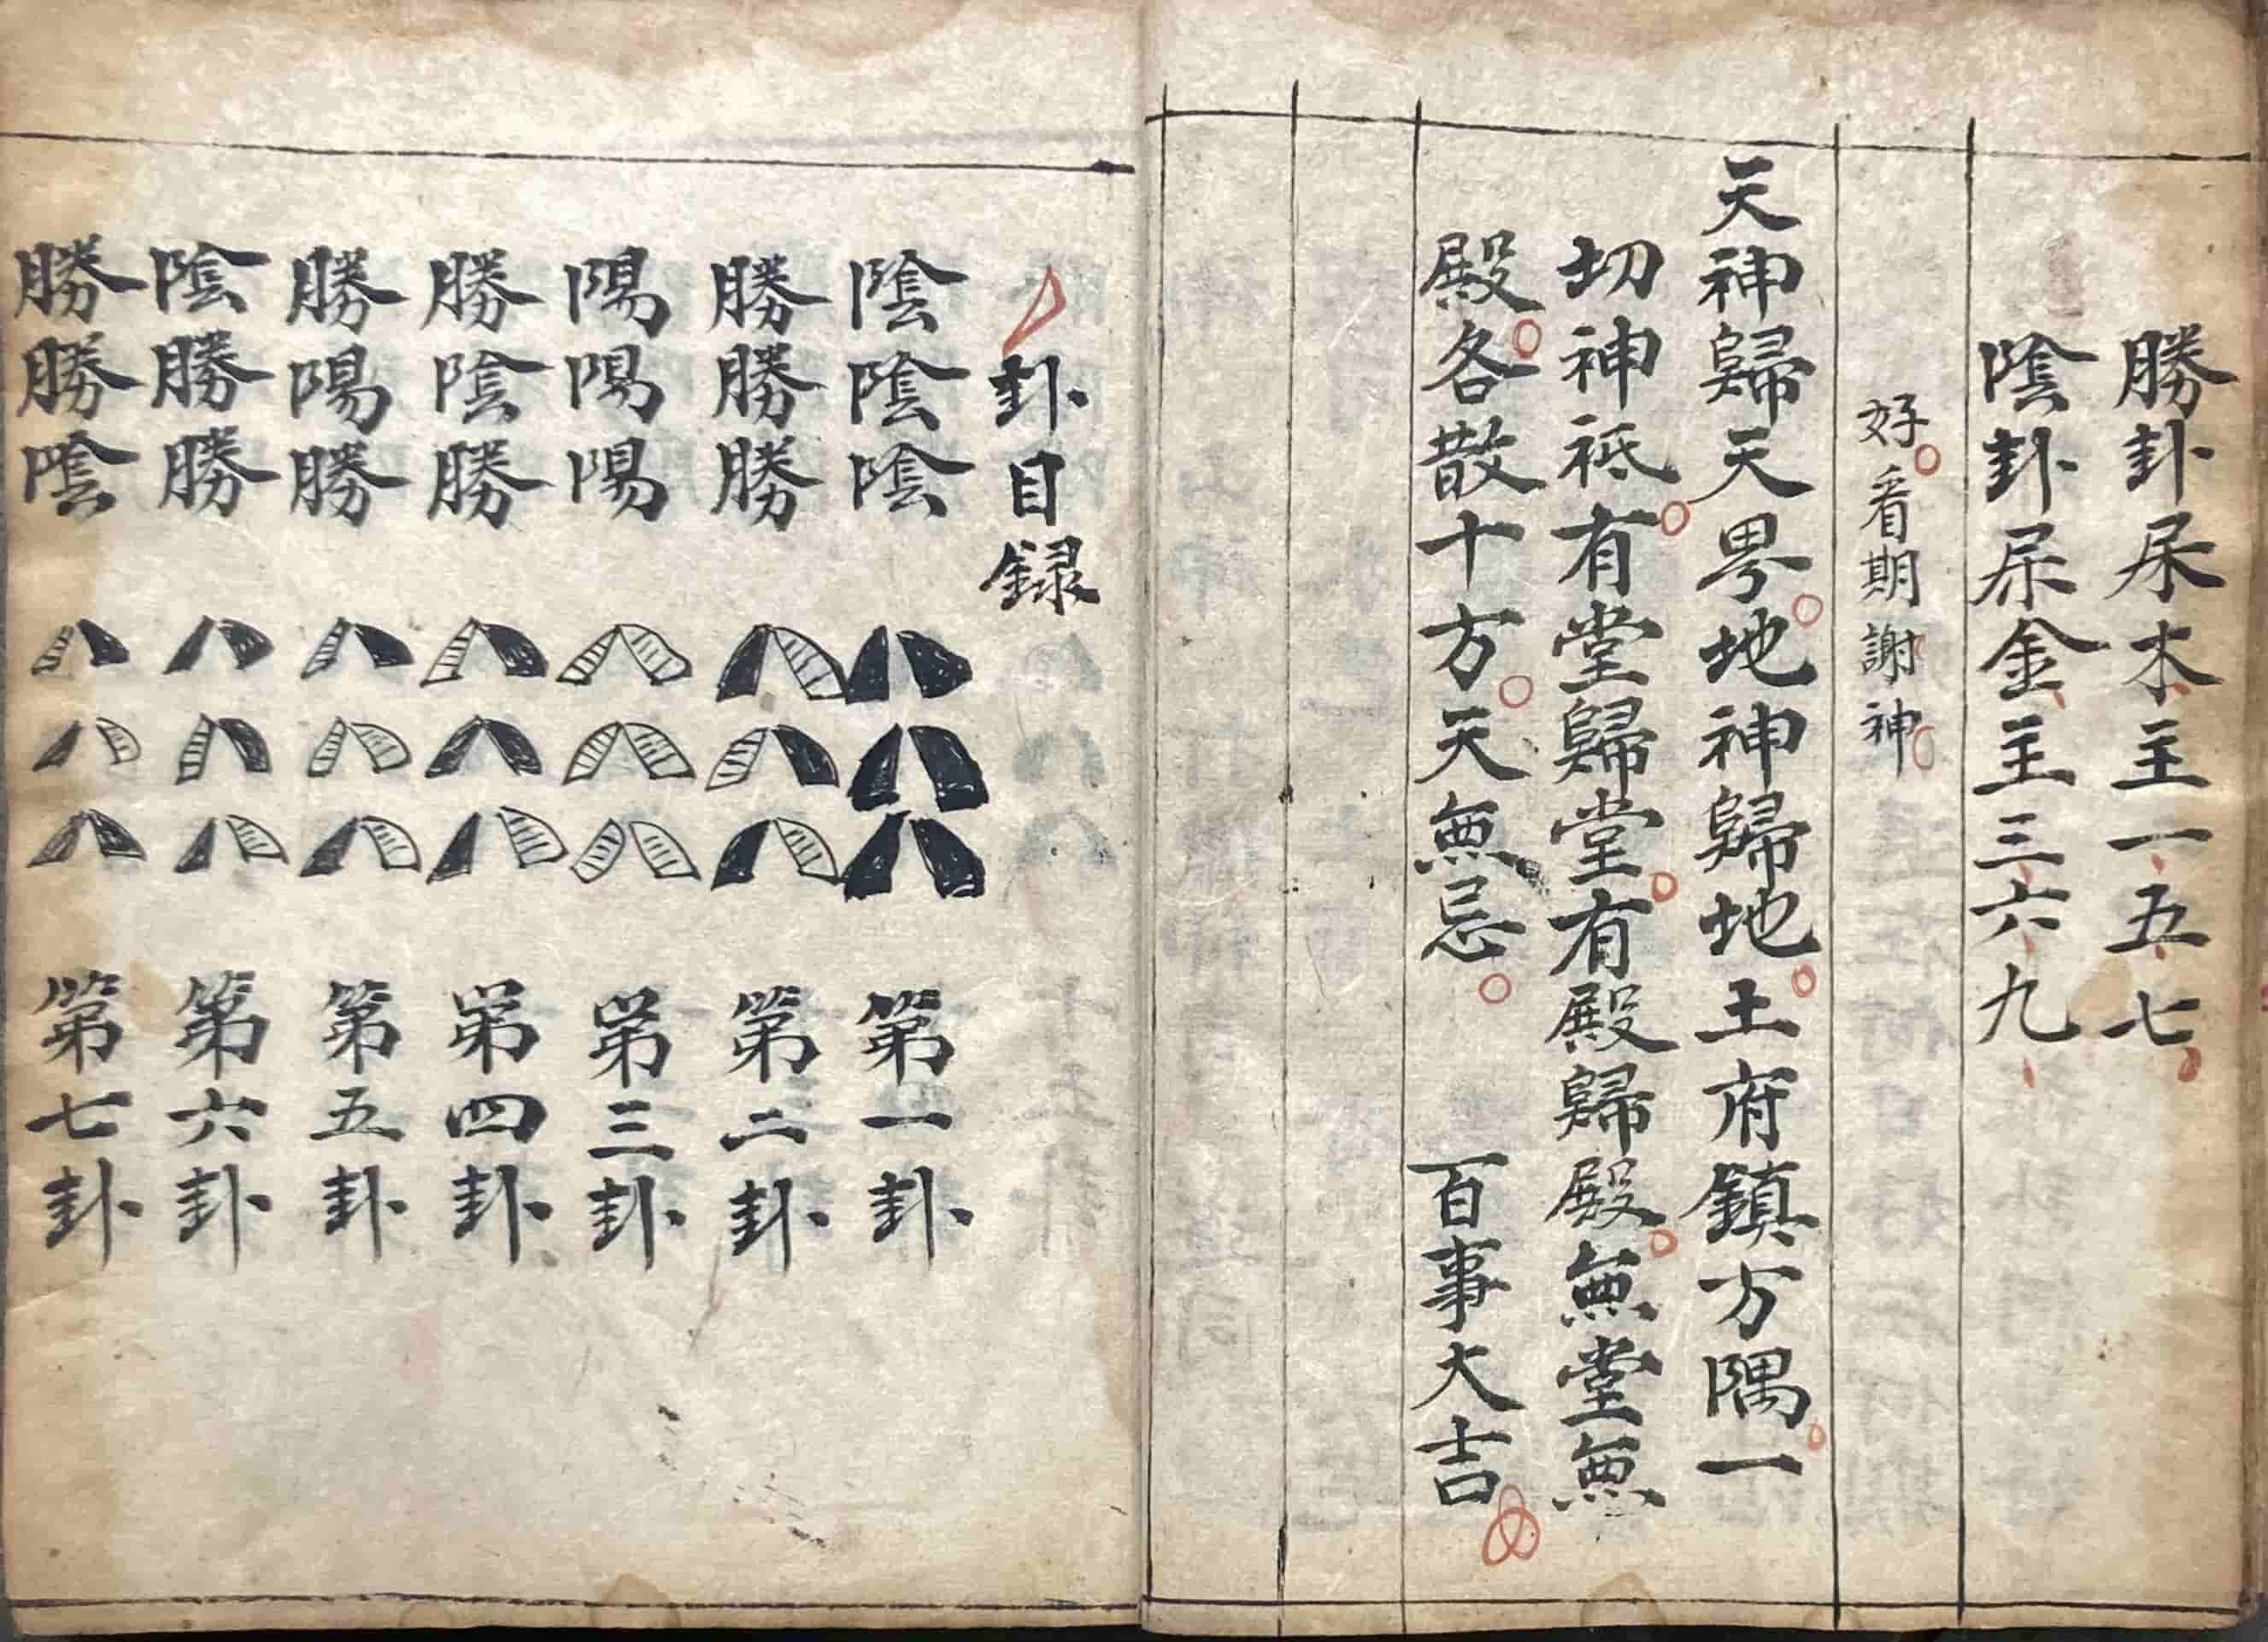 勝卦屎木主一五七
陰卦屎金主三六九
好看期謝神
天神歸天畍地神歸地土府鎮方隅一
切神祗有堂歸堂有殿歸殿無堂無
殿各散十方天無忌 百事大吉
卦目録
陰陰陰 第一卦
勝勝勝 第二卦
陽陽陽 第三卦
勝陰勝 第四卦
勝陽勝 第五卦
陰勝勝 第六卦
勝勝陰 第七卦